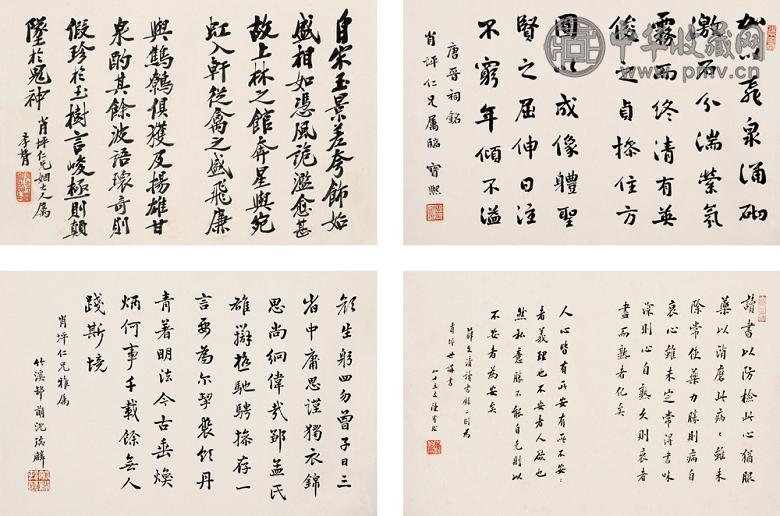 自宋玉景差夸飾始
盛相如憑風詭濫愈甚
故上林之館奔星與宛
虹入軒從禽之盛飛廉
與鷦鷯俱獲及揚雄甘
泉酌其餘波語瓌奇則
假珍於玉樹言峻極則顛
墜於鬼神
肖坪仁兄姻大人属
加以飛泉涌砌
激石分湍縈氛
霧而終清有英
俊之貞操住方
圓以成像體聖
賢之屈伸日注
不窮年傾不溢
唐晉祠銘
肖坪仁兄属臨 寶熙
顏生躬四勿曾子日三
省中庸思謹獨衣錦
思尚絅偉哉鄒孟氏
雄辯極馳騁操存一
言要為尔挈裘領丹
青著明法今古垂煥
炳何事千載餘無人
踐斯境
肖坪仁兄雅属
竹溪邨翁沈瑞麟
讀書以防檢此心猶服
藥以消磨此病病雖未
除常使藥力勝則病自
衰心雖未定常得書味
深則心自熟久則衰者
盡而熟者化矣
人心皆有所安有所不安安
者義理也不安者人欲也
然私意勝不能自克則以
不安者為安矣
薛文清讀書錄二則為
肖坪世講書
中华收藏网
www.pmv.cn